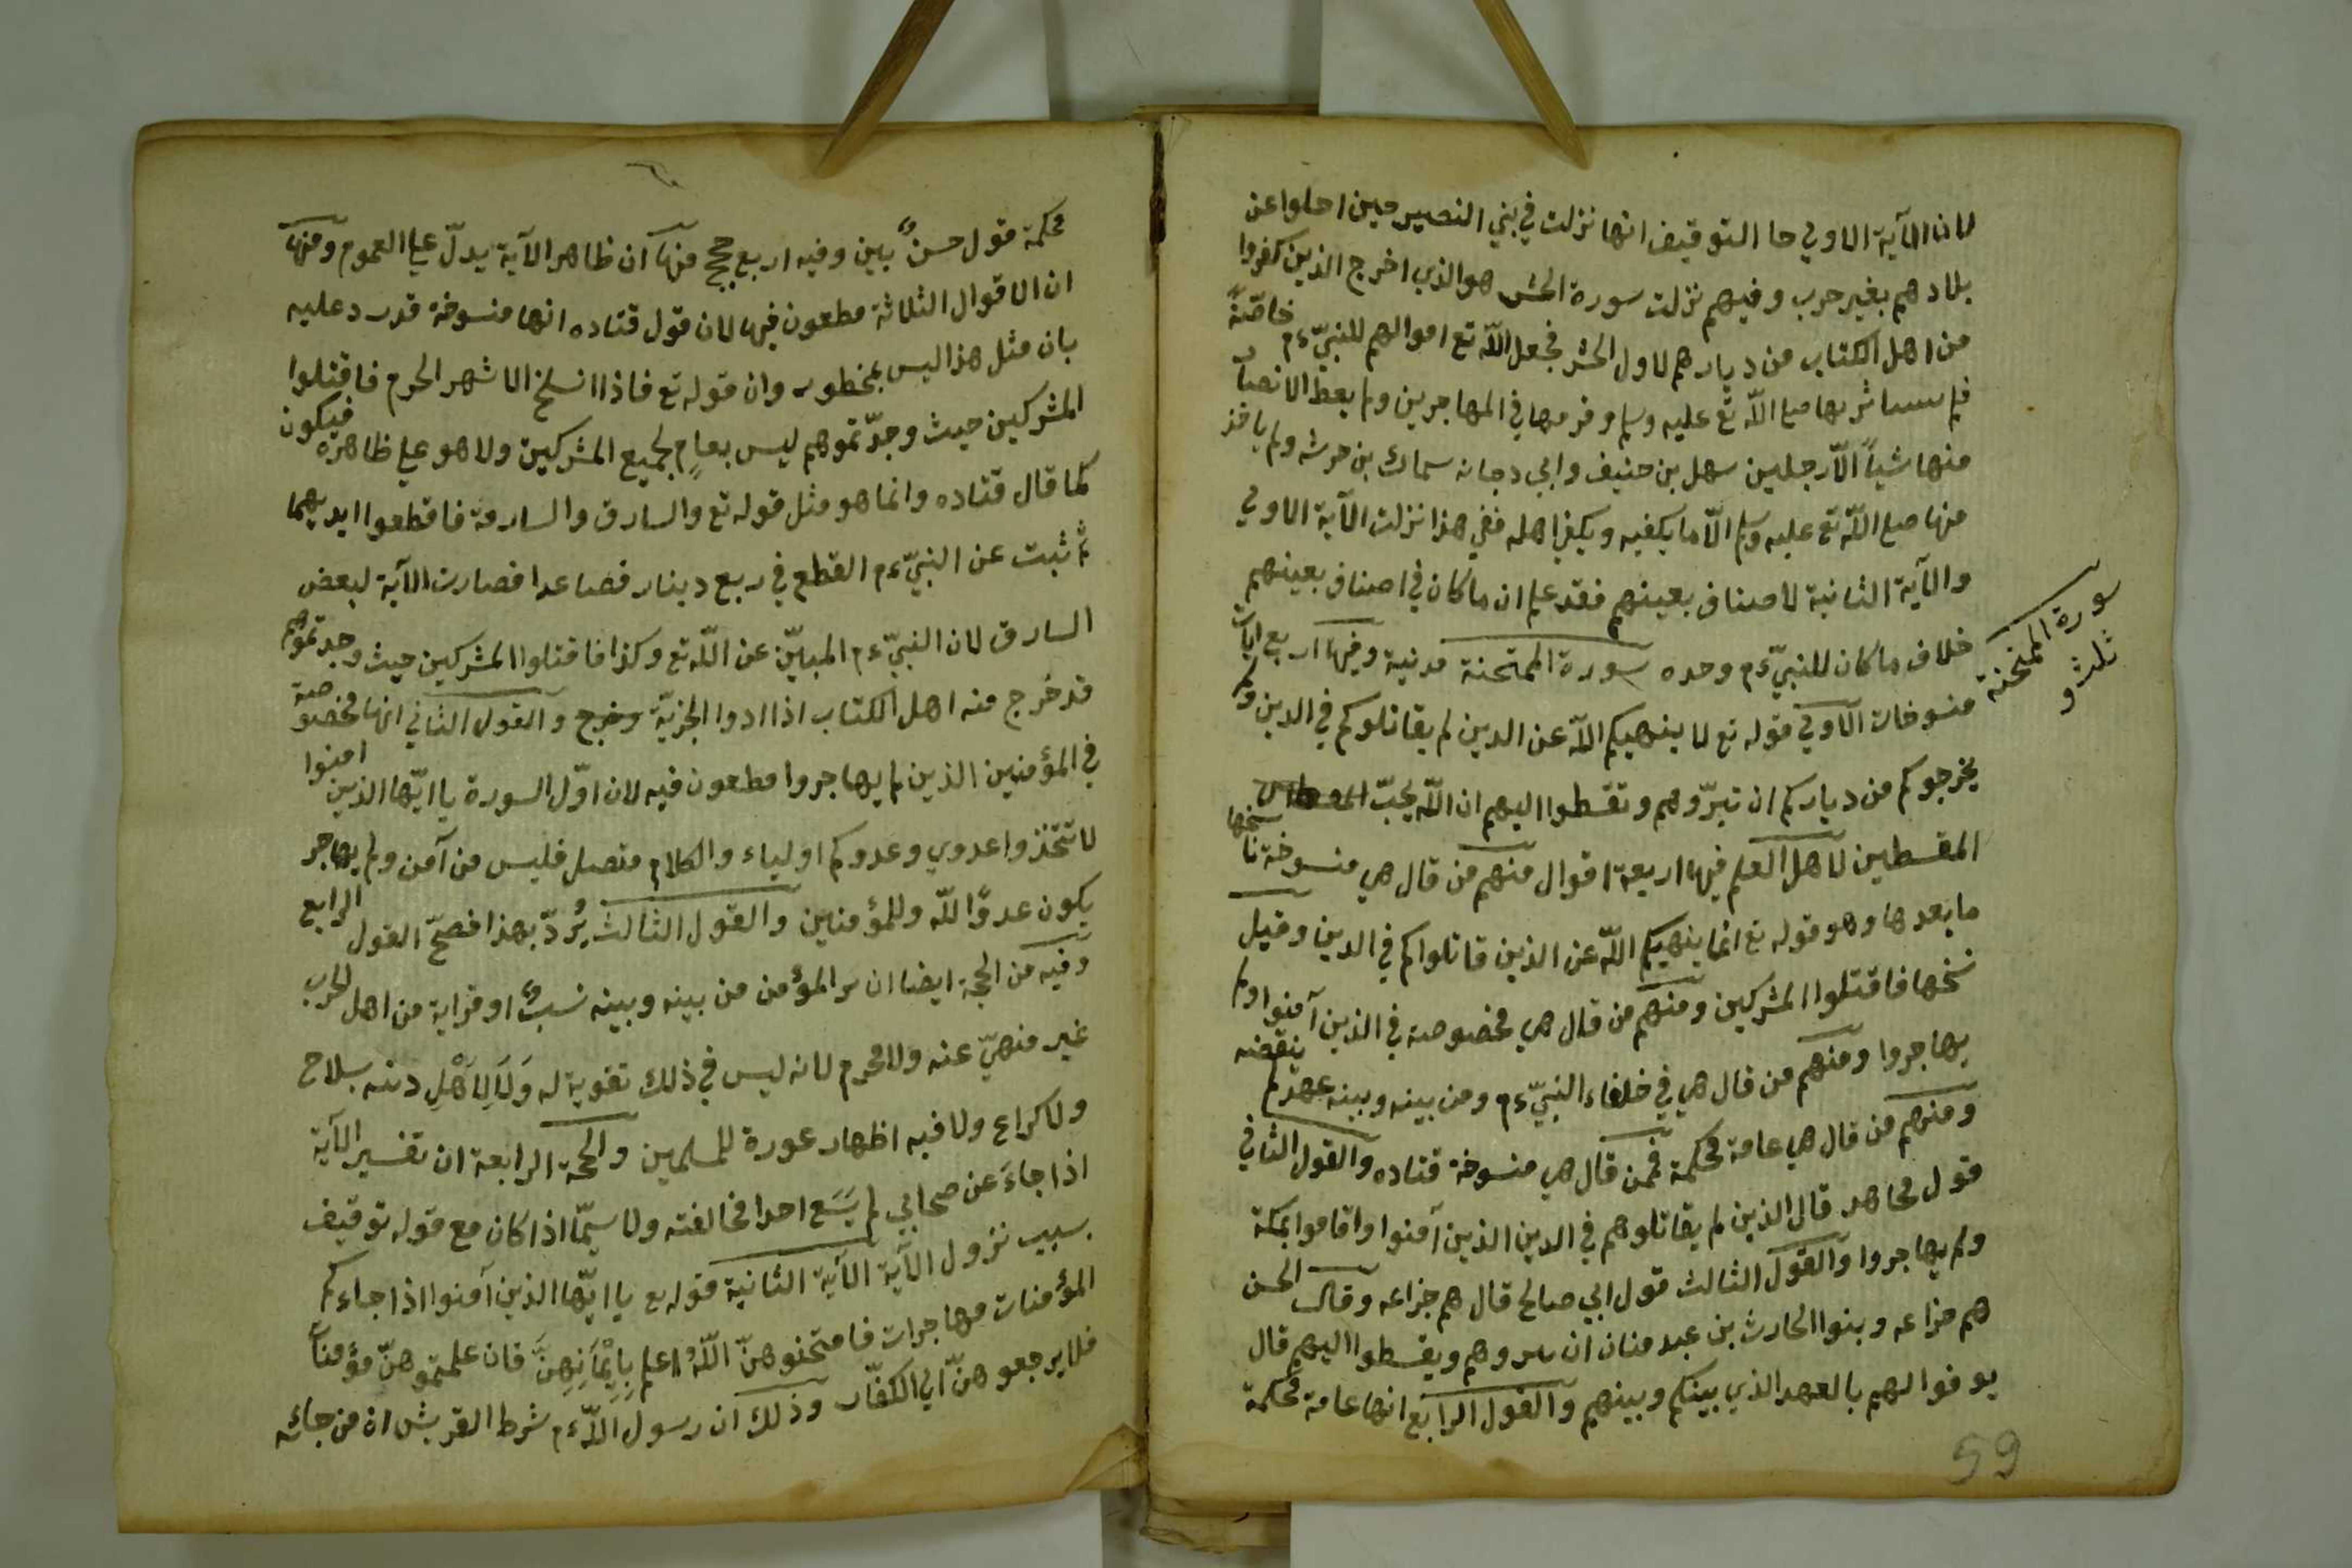 لان الآية الاولي جا التوقيف انها نزلت في بني النضير حين اجلوا عن
بلادهم بغير حرب وفيهم نزلت سورة الحشر هو الذي اخرج الذين كفروا
من اهل الكتاب من ديارهم لاول الحشر فجعل الله تع اموالهم للنبيّ ءم خاصّةً
فلم بها صلع الله تع عليه وسلم وفرقها في المهاجرين ولم يعط الانصار
منها شيأً الّا رجلين سهل بن حنيف وابي دجانه سماك بن خرشه ولم ياخذ
منها صلع الله تع عليه وسلم الّا ما يكفيه ويكفي اهله ففي هذا نزلت الآية الاولي
والآية الثانية لاصناف بعينهم فقد علم ان ما كان في اصناف بعينهم
خلاف ما كان للنبيّ ءم وحده سورة الممتحنة مدنية وفيها اربع ايات
سورة الممتحنة
ثلث و
منسوخات الاولي قوله تع لا ينهيكم الله عن الدين لم يقاتلوكم في الدين ولم
يخرجوكم من دياركم ان تبرّوهم وتقسطوا اليهم ان الله يحبّ
المقسطين لاهل العلم فيها اربعة اقوال منهم من قال هي منسوخة ناسخها
ما بعدها وهو قوله تع انما ينهيكم الله عن الذين قاتلواكم في الدين وقيل
نسخها فاقتلوا المشركين ومنهم من قال هي مخصوصة في الذين آمنوا ولم
يهاجروا ومنهم من قال هي في خلفاء النبيّ ءم ومن بينه وبينه عهد لم ينقضه
ومنهم من قال هي عامة محكمة فمن قال هي منسوخة قتاده والقول الثاني
قول مجاهد قال الذين لم يقاتلوهم في الدين الذين آمنوا واقاموا بمكة
ولم يهاجروا والقول الثالث قول ابي صالح قال هم خزاعه وقال الحسن
هم خزاعه وبنوا الحارث بن عبد مناف ان تبروهم ويقسطوا اليهم قال
يوفوا لهم بالعهد الذي بينكم وبينهم والقول الرابع انها عامة محكمة
59
محكمة قول حسنٌ بين وفيه اربع حجج منها ان ظاهر الآية يدلّ علي العموم ومنها
ان الاقوال الثلاثة مطعون فيها لان قول قتاده انها منسوخة قد رد عليه
بان مثل هذا ليس بمحظور وان قوله تع فاذا انسلخ الاشهر الحرم فاقتلوا
المشركين حيث وجدّتموهم ليس بعامٍ لجميع المشركين ولا هو علي ظاهره فيكون
كما قال قتاده وانما هو مثل قوله تع والسارق والسارقة فاقطعوا ايديهما
ثم ثبت عن النبيّ ءم القطع في ربع دينار فصاعدا فصارت الآية لبعض
السارق لان النبيّ ءم المبيّن عن الله تع وكذا فاقتلوا المشركين حيث وجدتموهم
قد خرج منه اهل الكتاب اذا ادوا الجزيّة وخرج والقول الثاني انها مخصوصة
في المؤمنين الذين لم يهاجروا مطعون فيه لان اوّل السورة يا ايّها الذين امنوا
لا تتخذوا عدوي وعدوكم اولياء والكلام متصل فليس من آمن ولم يهاجر
يكون عدوًّا لله وللمؤمنين والقول الثالث يُردّ بهذا فصحّ القول الرابع
وفيه من الحجة ايضا ان بر المؤمن من بينه وبينه نسبٌ او قرابة من اهل الحرب
غير منهيّ عنه ولا محرم لانه ليس في ذلك تقوية له وَلَا لِاَهْلِ دينه بسلاح
ولا كراع ولا فيه اظهار عورة للمسلمين والحجة الرابعة ان تفسير الآية
اذا جاءَ عن صحابي لم يَسَع احدا مخالفته ولا سيّما اذا كان مع قوله توقيف
بسبب نزول الآية الآية الثانية قوله تع يا ايّها الذين آمنوا اذا جاءكم
المؤمنات مهاجرات فامتحنوهنّ اللّهُ اعلم بِاِيْمَانِهِنَّ فان علمتموهنّ مؤمنات
فلا يرجعوهنّ الي الكفّار وذلك ان رسول الله ءم شرط القريش ان من جائه